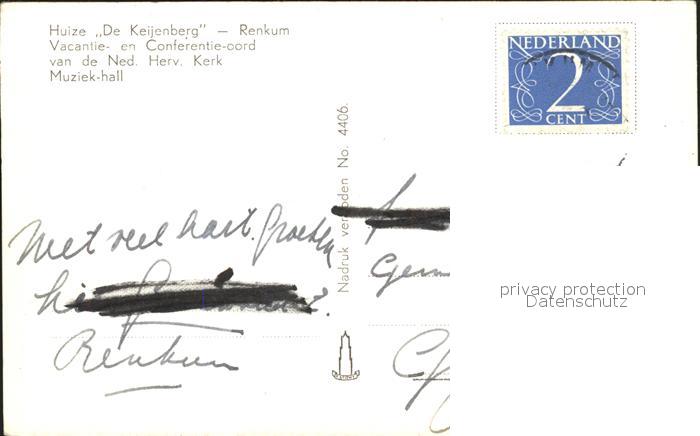 Huize „De Keijenberg” — Renkum
Vacantie- en Conferentie-oord
van de Ned. Herv. Kerk
Muziek-hall
NEDERLAND
2
CENT
Nadruk verboden No. 4406.
Met veel hart. groeten
Renkum
privacy protection
Datenschutz